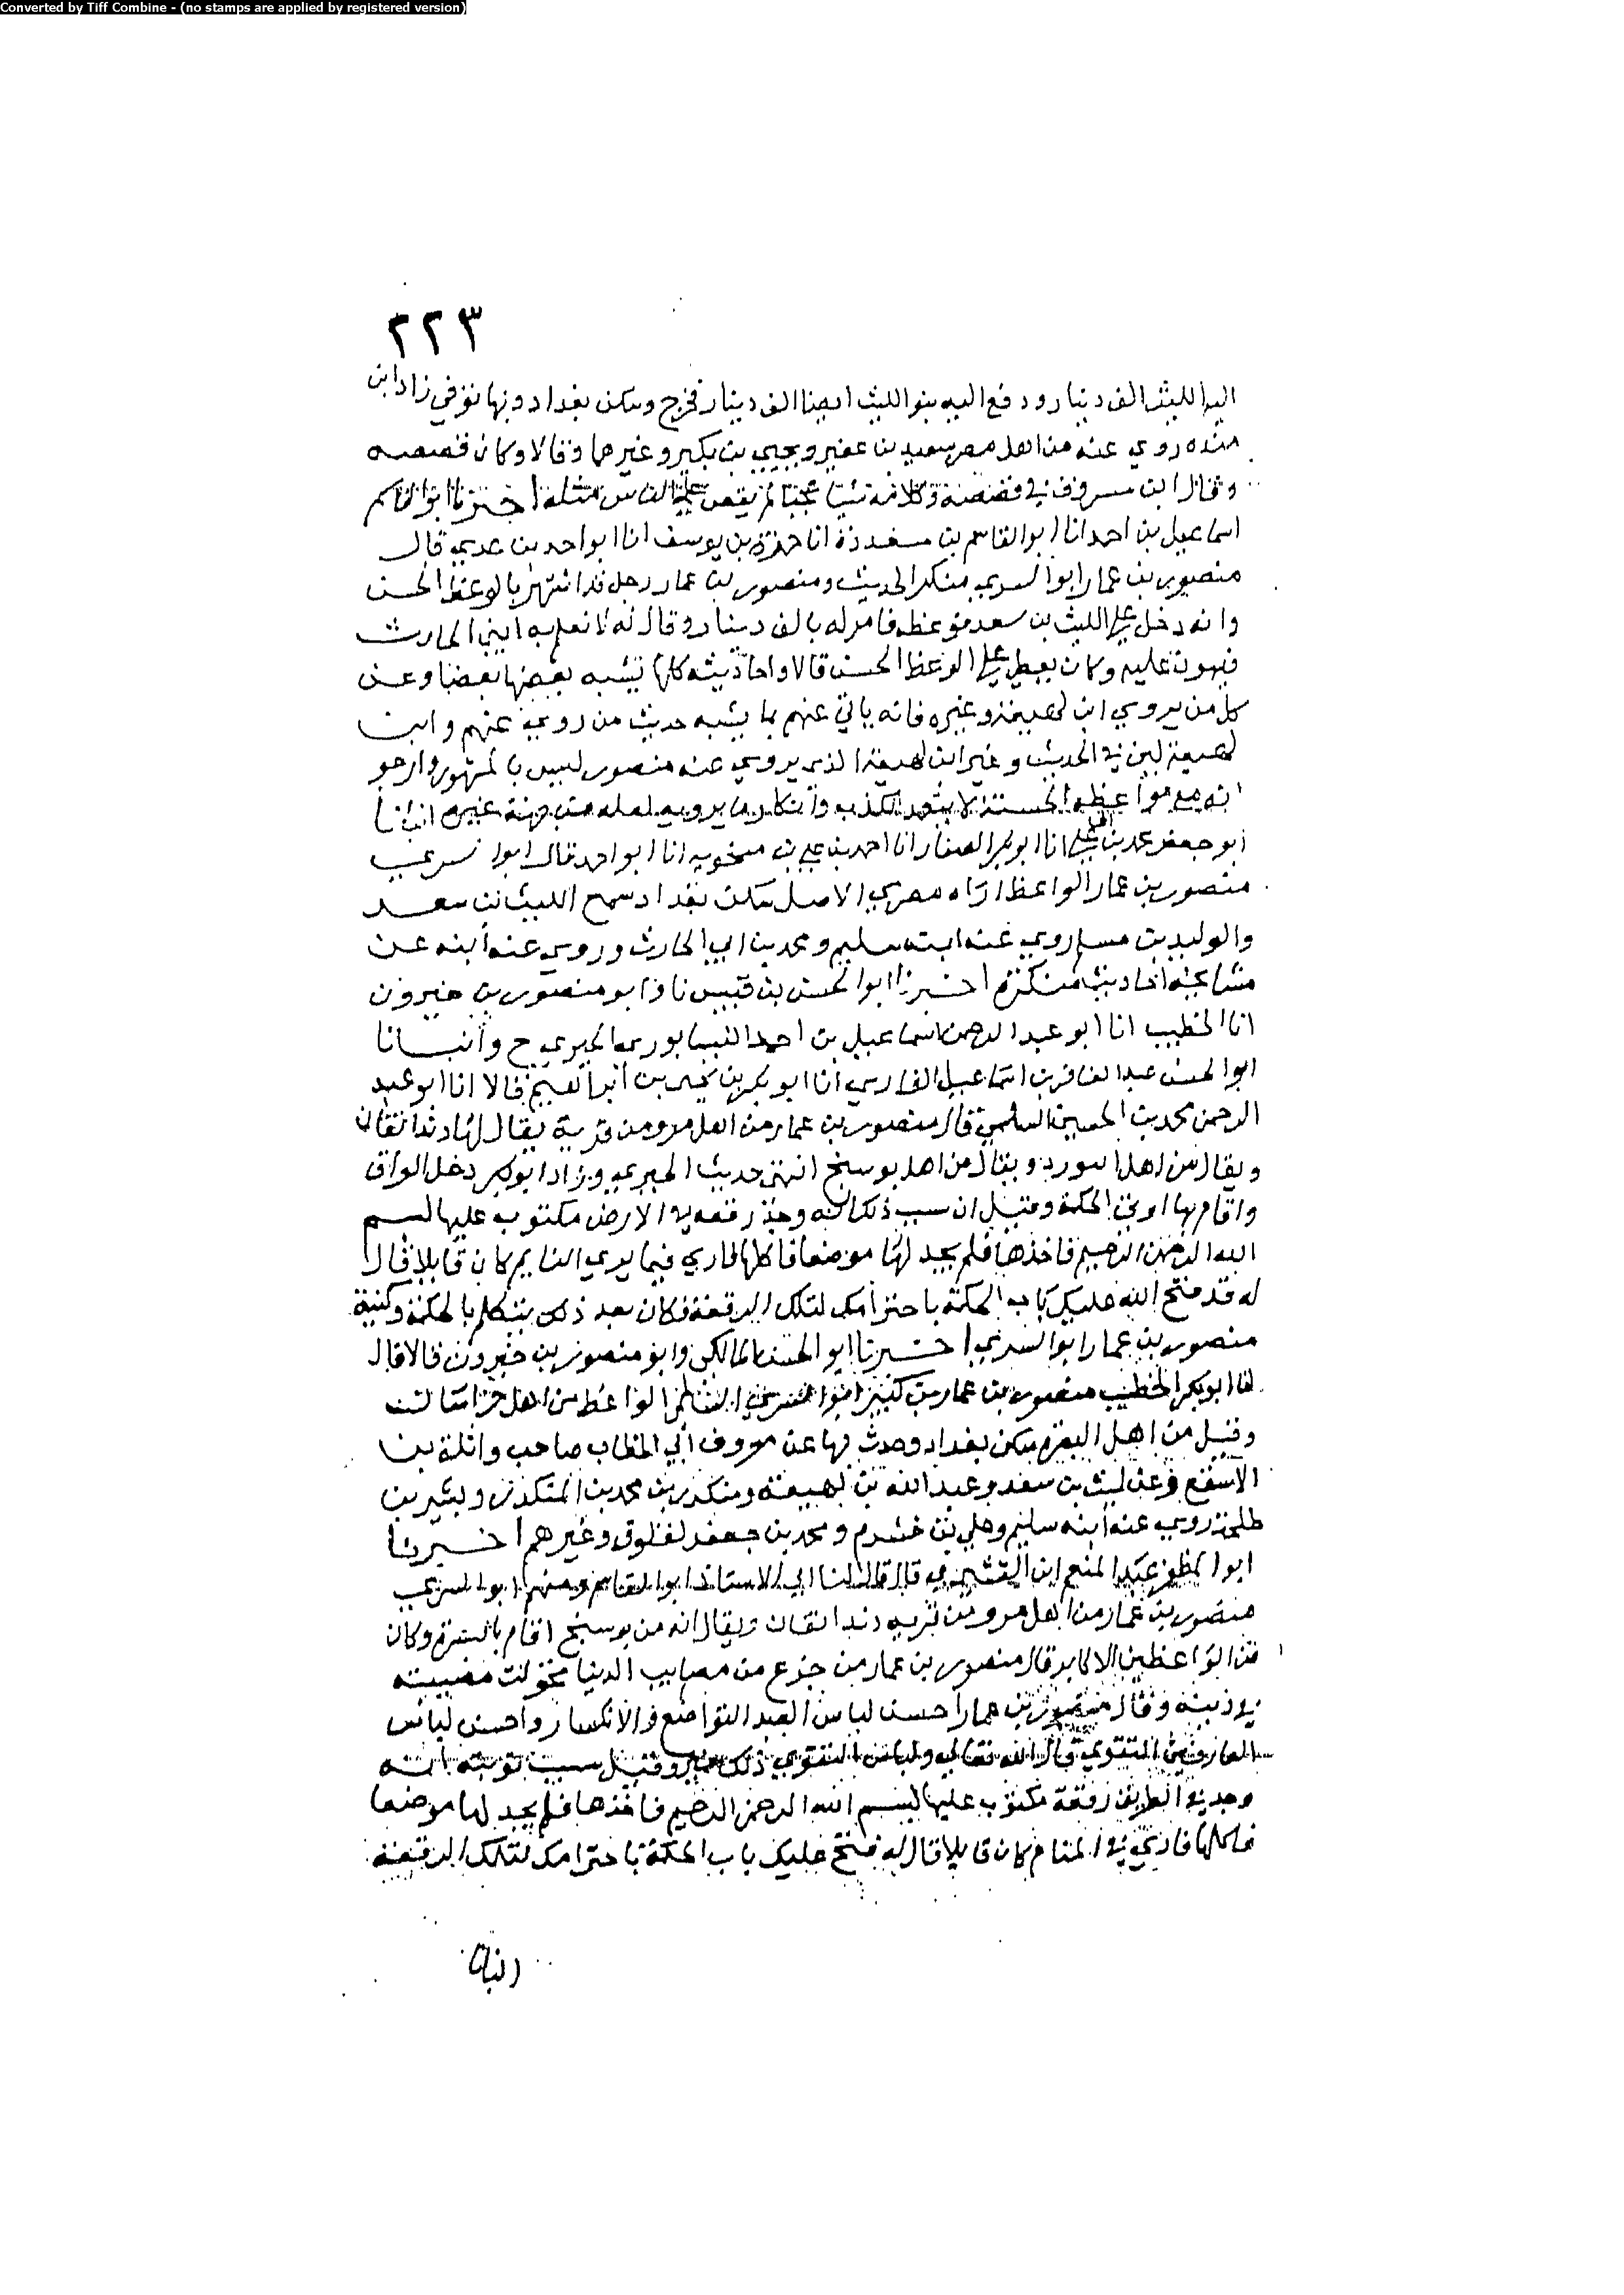 Converted by Tiff Combine - (no stamps are applied by registered version)
٢٢٣
اليه الليث الف دينار ودفع اليه بنو الليث ايضا الف دينار فخرج وسكن بغداد وبها توفي زاد ابن
منده روي عنه من اهل مصر سعيد بن عفير ويحيي بن بكير وغيرهما وقالا وكان قصصه
وقال ابن مسروق في قصصه وكلامه شيا عجبا لم يقص علي الناس مثله اخبرنا ابو القاسم
اسماعيل بن احمد انا ابو القاسم بن مسعدة انا حمزة بن يوسف انا ابو احمد بن عدي قال
منصور بن عمار ابو السري منكر الحديث ومنصور بن عمار رجل قد اشتهر بالوعظ الحسن
وانه دخل علي الليث بن سعد فوعظه فامر له بالف دينار وقال له لا تعلم به ابني الحارث
فيهون عليه وكان يعطي علي الوعظ الحسن قالا واحاديثه كلها تشبه بعضها بعضا وعن
كل من يروي ابن لهيعة وغيره فانه ياتي عنهم بما يشبه حديث من روي عنهم وابن
لهيعة لين في الحديث وغير ابن لهيعة الذي يروي عنه منصور ليس بالمشهور وارجو
انه مع مواعظه الحسنة لا يتعمد الكذب وانكار ما يرويه لعله من جهة غيره انبانا
ابو جعفر محمد بن ابي علي انا ابو بكر الصفار انا احمد بن علي بن منجويه انا ابو احمد قال ابو السري
منصور بن عمار الواعظ اراه مصري الاصل سكن بغداد سمع الليث بن سعد
والوليد بن مسلم روي عنه ابنه سليم ومحمد بن ابي الحارث وروي عنه ابنه عن
مشايخه احاديث منكرة اخبرنا ابو الحسن بن قبيس نا وابو منصور بن خيرون
انا الخطيب انا ابو عبد الرحمن اسماعيل بن احمد النيسابوري الحيري ح وانبانا
ابو الحسن عبد الغافر بن اسماعيل الفارسي انا ابو بكر بن يحيي بن ابراهيم قالا انا ابو عبد
الرحمن محمد بن الحسين السلمي قال منصور بن عمار من اهل مرو من قرية يقال لها دندانقان
ويقال من اهل ابيورد ويقال من اهل بوسنج انتهي حديث الحيري وزاد ابو بكر دخل العراق
واقام بها اوتي الحكمة وقيل ان سبب ذلك انه وجد رقعة في الارض مكتوب عليها بسم
الله الرحمن الرحيم فاخذها فلم يجد لها موضعا فاكلها فاري فيما يري النايم كان قايلا قال
له قد فتح الله عليك باب الحكمة باحترامك لتلك الرقعة فكان بعد ذلك يتكلم بالحكمة وكنية
منصور بن عمار ابو السري اخبرنا ابو الحسن المالكي وابو منصور بن خيرون قالا قال
لنا ابو بكر الخطيب منصور بن عمار بن كثير ابو السري السلمي الواعظ من اهل خراسان
وقيل من اهل البصرة سكن بغداد وحدث بها عن معروف ابي الخطاب صاحب واثلة بن
الاسقع وعن ليث بن سعد وعبد الله بن لهيعة ومنكدر بن محمد بن المنكدر وبشير بن
طلحة روي عنه ابنه سليم وعلي بن خشرم ومحمد بن جعفر لقلوق وغيرهم اخبرنا
ابو المظفر عبد المنعم ابن القشيري قال قال لنا ابي الاستاذ ابو القاسم ومنهم ابو السري
منصور بن عمار من اهل مرو من قرية دندانقان ويقال انه من بوسنج اقام بالبصرة وكان
من الواعظين الاكابر قال منصور بن عمار من جزع من مصايب الدنيا تحولت مصيبته
في دينه وقال منصور بن عمار احسن لباس العبد التواضع والانكسار واحسن لباس
العارفين التقوي قال الله تعالي ولباس التقوي ذلك خير وقيل سبب توبته انه
وجد في الطريق رقعة مكتوب عليها بسم الله الرحمن الرحيم فاخذها فلم يجد لها موضعا
فاكلها فاري في المنام كان قايلا قال له فتح عليك باب الحكمة باحترامك لتلك الرقعة
انبانا